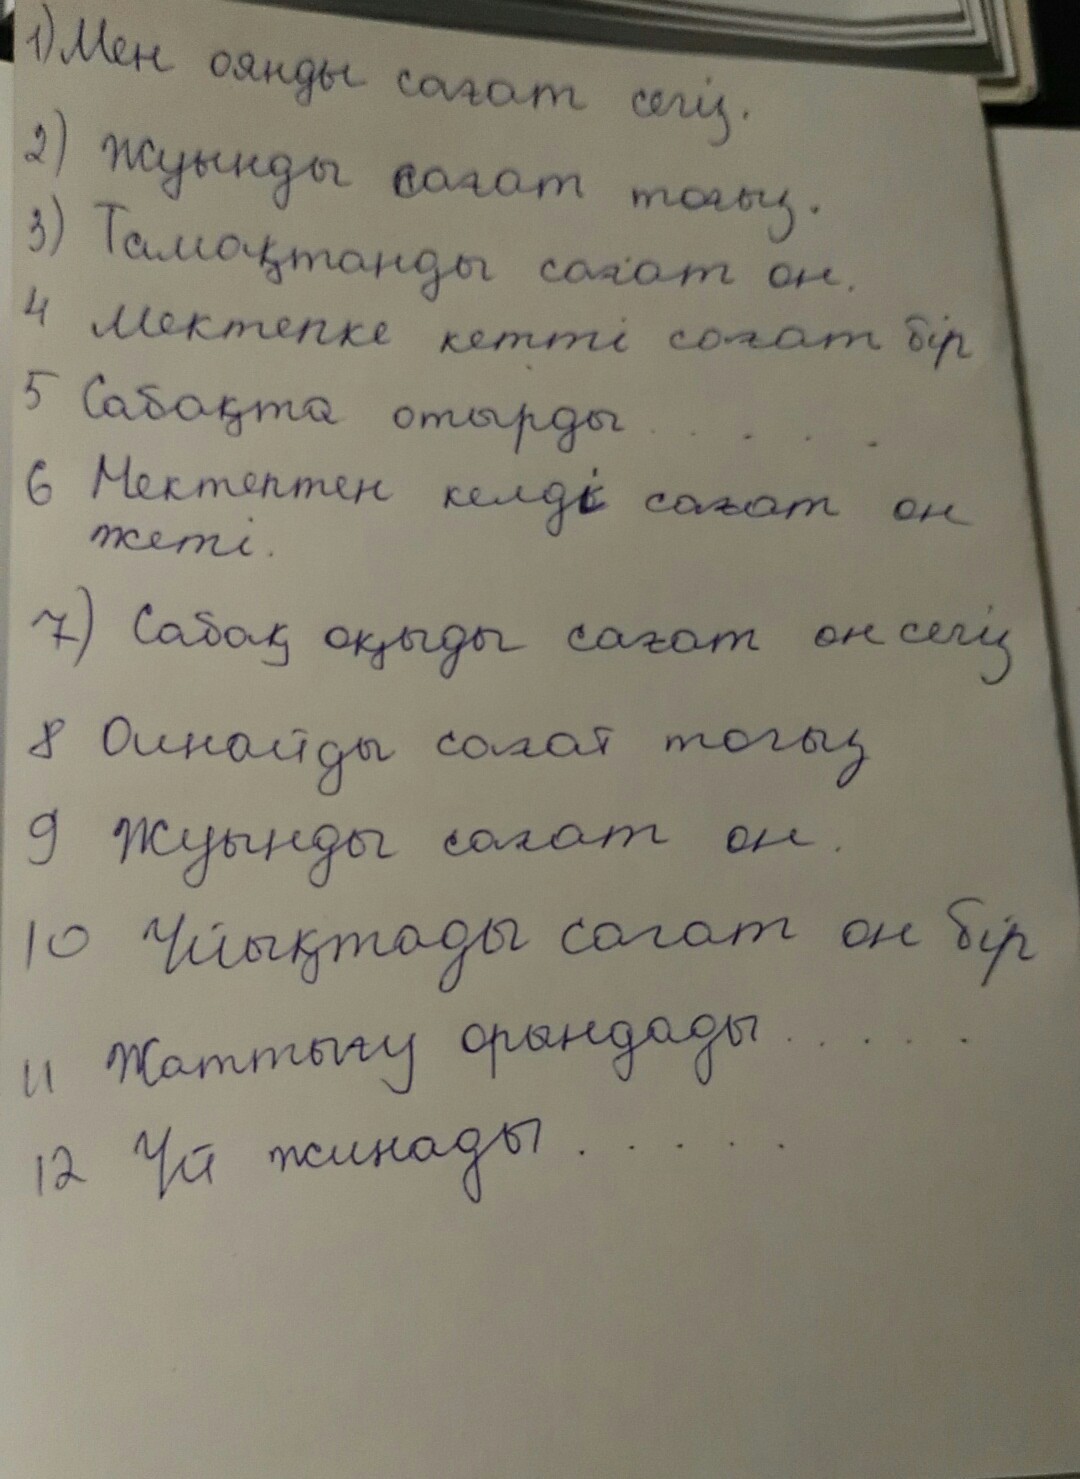 1) Мен оянды сағат сегіз.
2) Жуынды сағат тоғыз.
3) Тамақтанды сағат он.
4 Мектепке кетті сағат бір
5 Сабақта отырды . . . . .
6 Мектептен келді сағат он
жеті.
7) Сабақ оқыды сағат он сегіз
8 Ойнайды сағат тоғыз
9 Жуынды сағат он.
10 Ұйықтады сағат он бір
11 Жаттығу орындады . . . . .
12 Үй жинады . . . . .